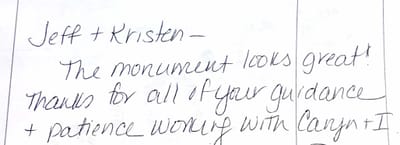 Jeff + Kristen –
The monument looks great!
Thanks for all of your guidance
+ patience working with Caryn + I